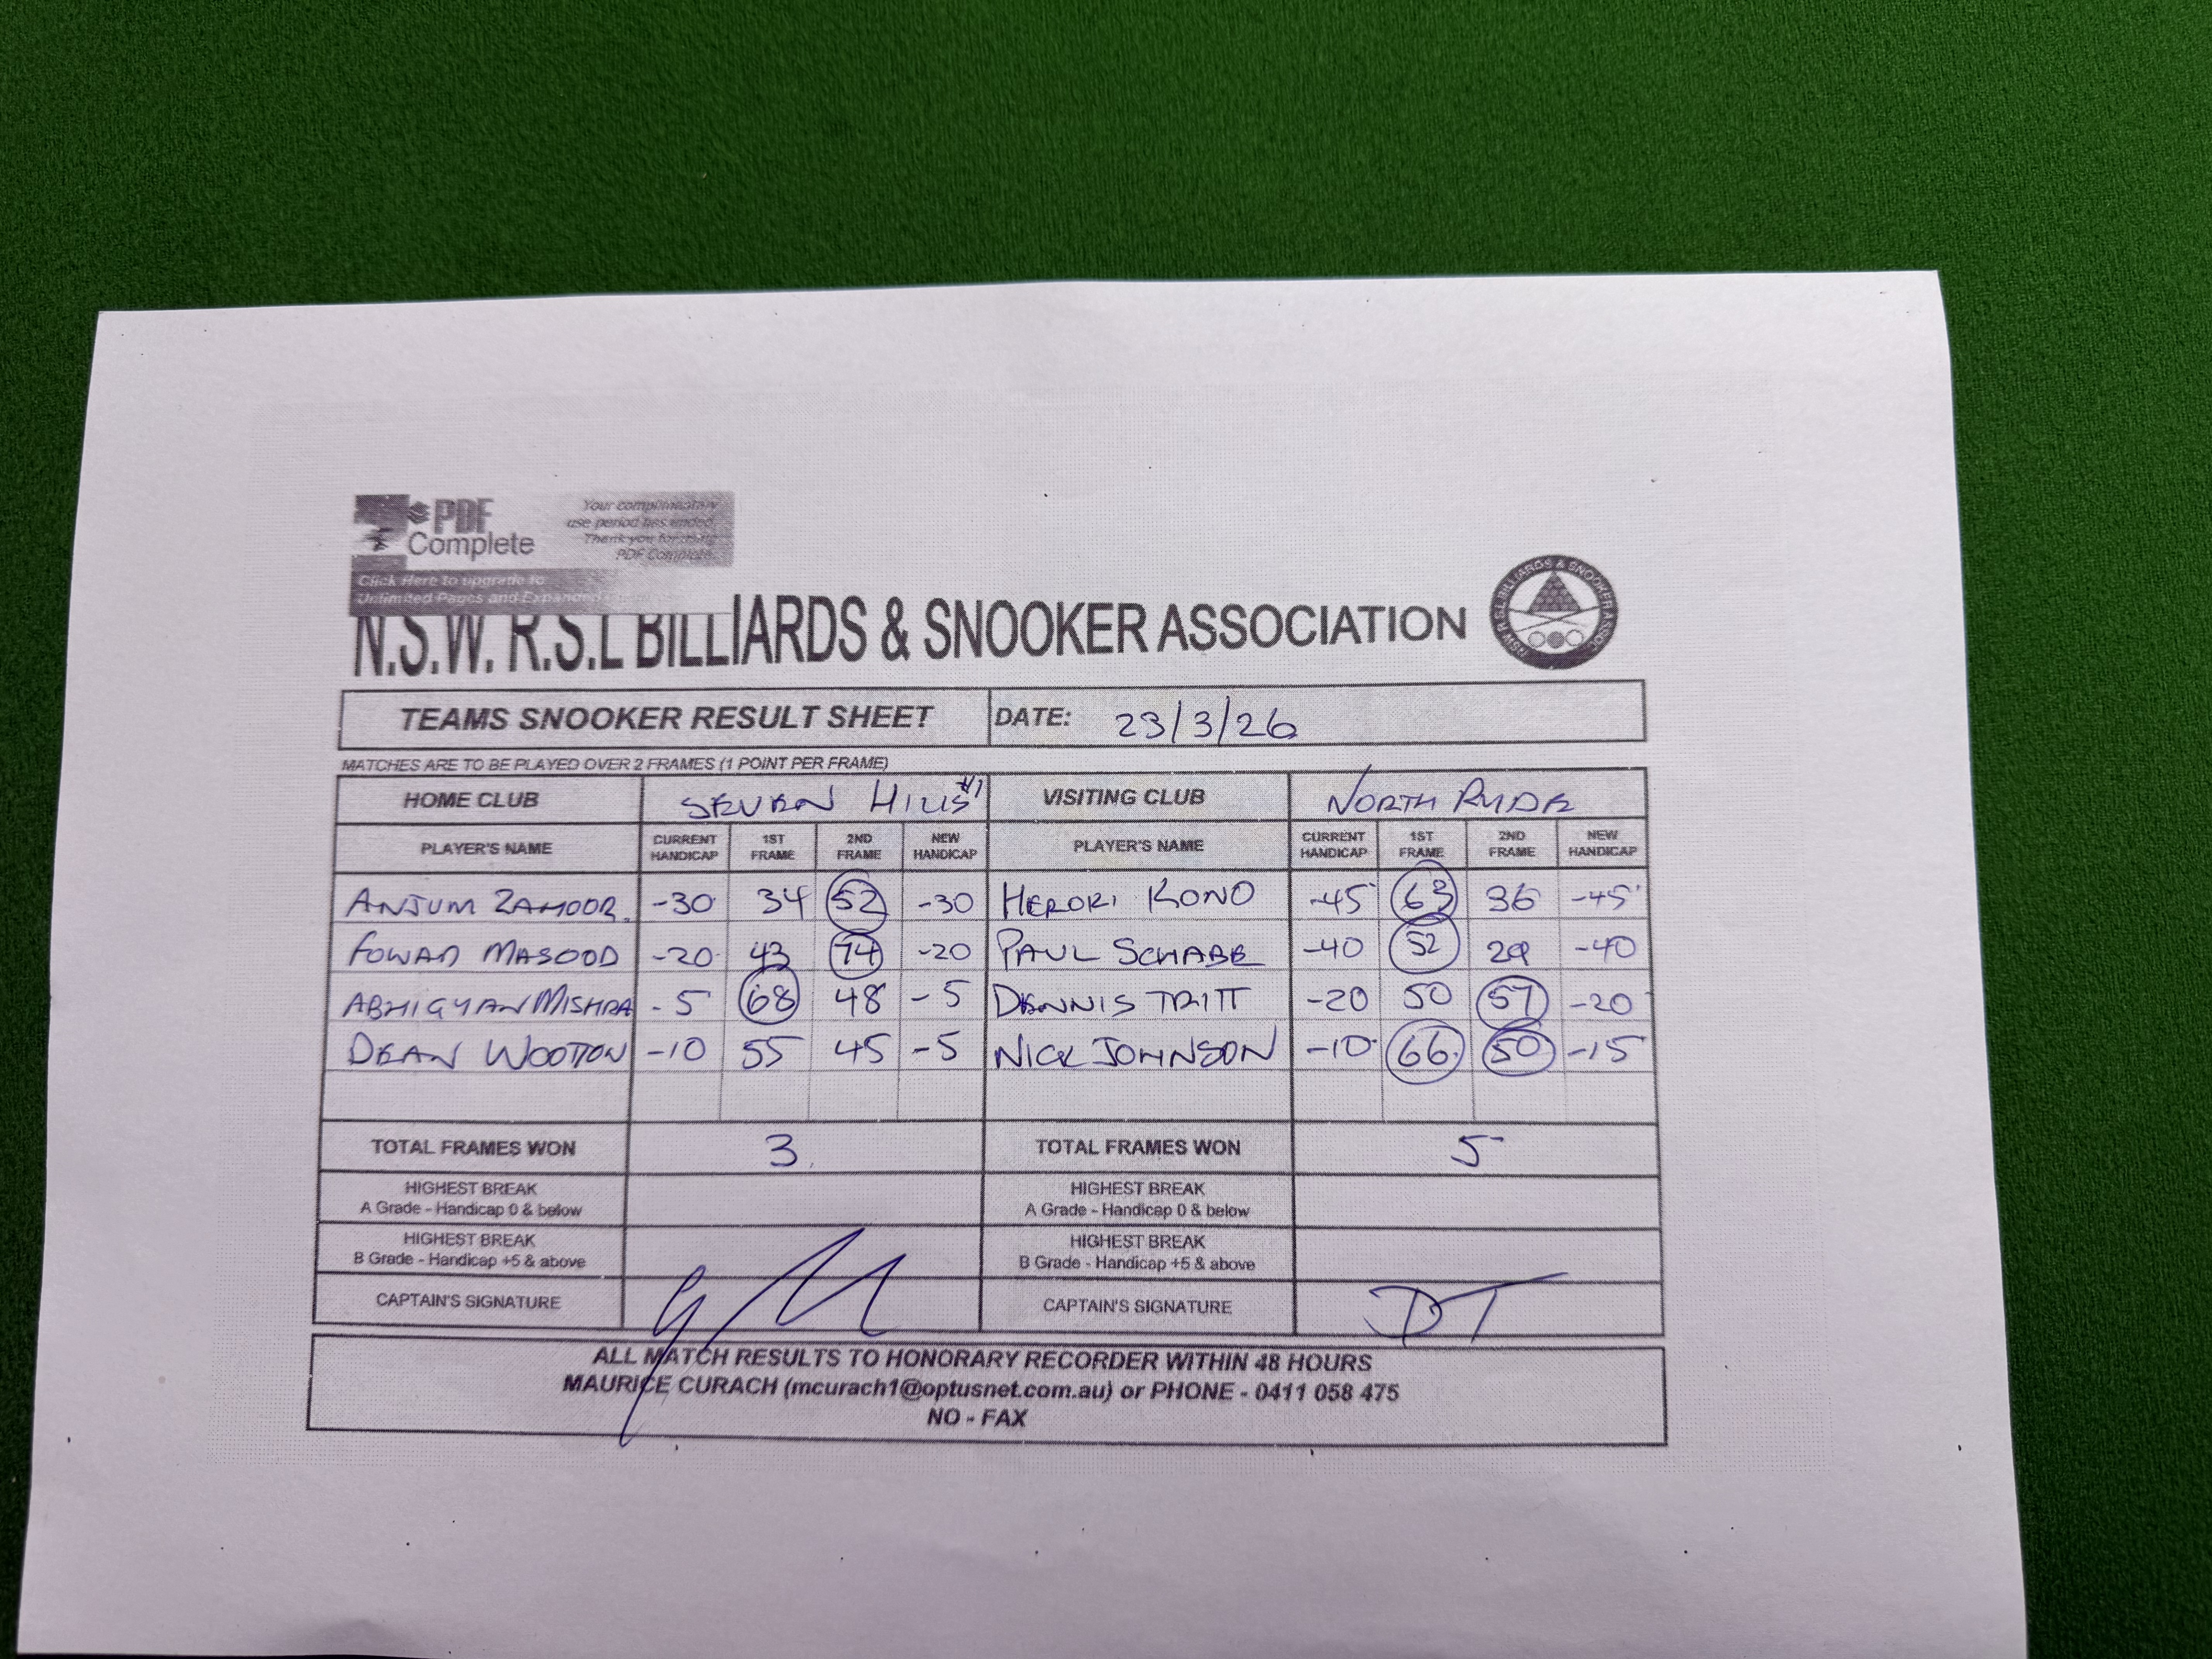 PDF
Complete
Your complimentary
use period has ended.
Thank you for using
PDF Complete.
Click Here to upgrade to
Unlimited Pages and Expanded
N.S.W. R.S.L BILLIARDS & SNOOKER ASSOCIATION
NSW R.S.L BILLIARDS & SNOOKER ASSOC.
TEAMS SNOOKER RESULT SHEET DATE: 23/3/26
MATCHES ARE TO BE PLAYED OVER 2 FRAMES (1 POINT PER FRAME)
HOME CLUB SEVEN HILLS #1 VISITING CLUB NORTH RYDE
PLAYER'S NAME CURRENT HANDICAP 1ST FRAME 2ND FRAME NEW HANDICAP PLAYER'S NAME CURRENT HANDICAP 1ST FRAME 2ND FRAME NEW HANDICAP
ANJUM ZAHOOR. -30 34 52 -30 HEROKI KONO -45 63 36 -45
FOWAD MASOOD -20 43 74 -20 PAUL SCHABE -40 52 29 -40
ABHIGYAN MISHRA -5 68 48 -5 DENNIS TRITT -20 50 57 -20
DEAN WOOTTON -10 55 45 -5 NICK JOHNSON -10 66 50 -15
TOTAL FRAMES WON 3 TOTAL FRAMES WON 5
HIGHEST BREAK
A Grade - Handicap 0 & below
HIGHEST BREAK
A Grade - Handicap 0 & below
HIGHEST BREAK
B Grade - Handicap +5 & above
HIGHEST BREAK
B Grade - Handicap +5 & above
CAPTAIN'S SIGNATURE CAPTAIN'S SIGNATURE DT
ALL MATCH RESULTS TO HONORARY RECORDER WITHIN 48 HOURS
MAURICE CURACH (mcurach1@optusnet.com.au) or PHONE - 0411 058 475
NO - FAX